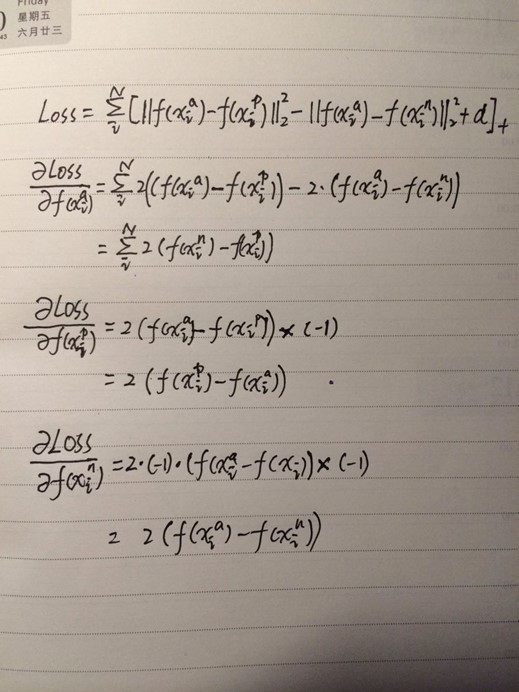 Friday
星期五
六月廿三
Loss = \sum_{i}^{N} [ ||f(x_i^a) - f(x_i^p)||_2^2 - ||f(x_i^a) - f(x_i^n)||_2^2 + α ]_+
\frac{∂Loss}{∂f(x_i^a)} = \sum_{i}^{N} 2((f(x_i^a) - f(x_i^p)) - 2·(f(x_i^a) - f(x_i^n))
= \sum_{i}^{N} 2(f(x_i^n) - f(x_i^p))
\frac{∂Loss}{∂f(x_i^p)} = 2(f(x_i^a) - f(x_i^p)) × (-1)
= 2(f(x_i^p) - f(x_i^a)) .
\frac{∂Loss}{∂f(x_i^n)} = 2·(-1)·(f(x_i^a - f(x_i)) × (-1)
= 2(f(x_i^a) - f(x_i^n))